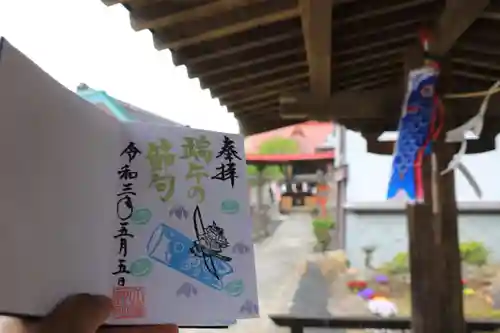 奉拝
端午の
節句
令和三年五月五日